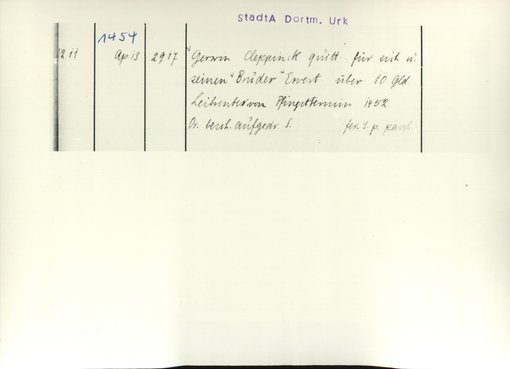 StadtA Dortm. Urk
1454
Ap. 13 2917 Gerwin Cleppinck quitt. für sich u
seinen "Brüder" Evert über 10 Gld
Leibrente von Pfingsttermin 1452
Or. besch. aufgedr. S.